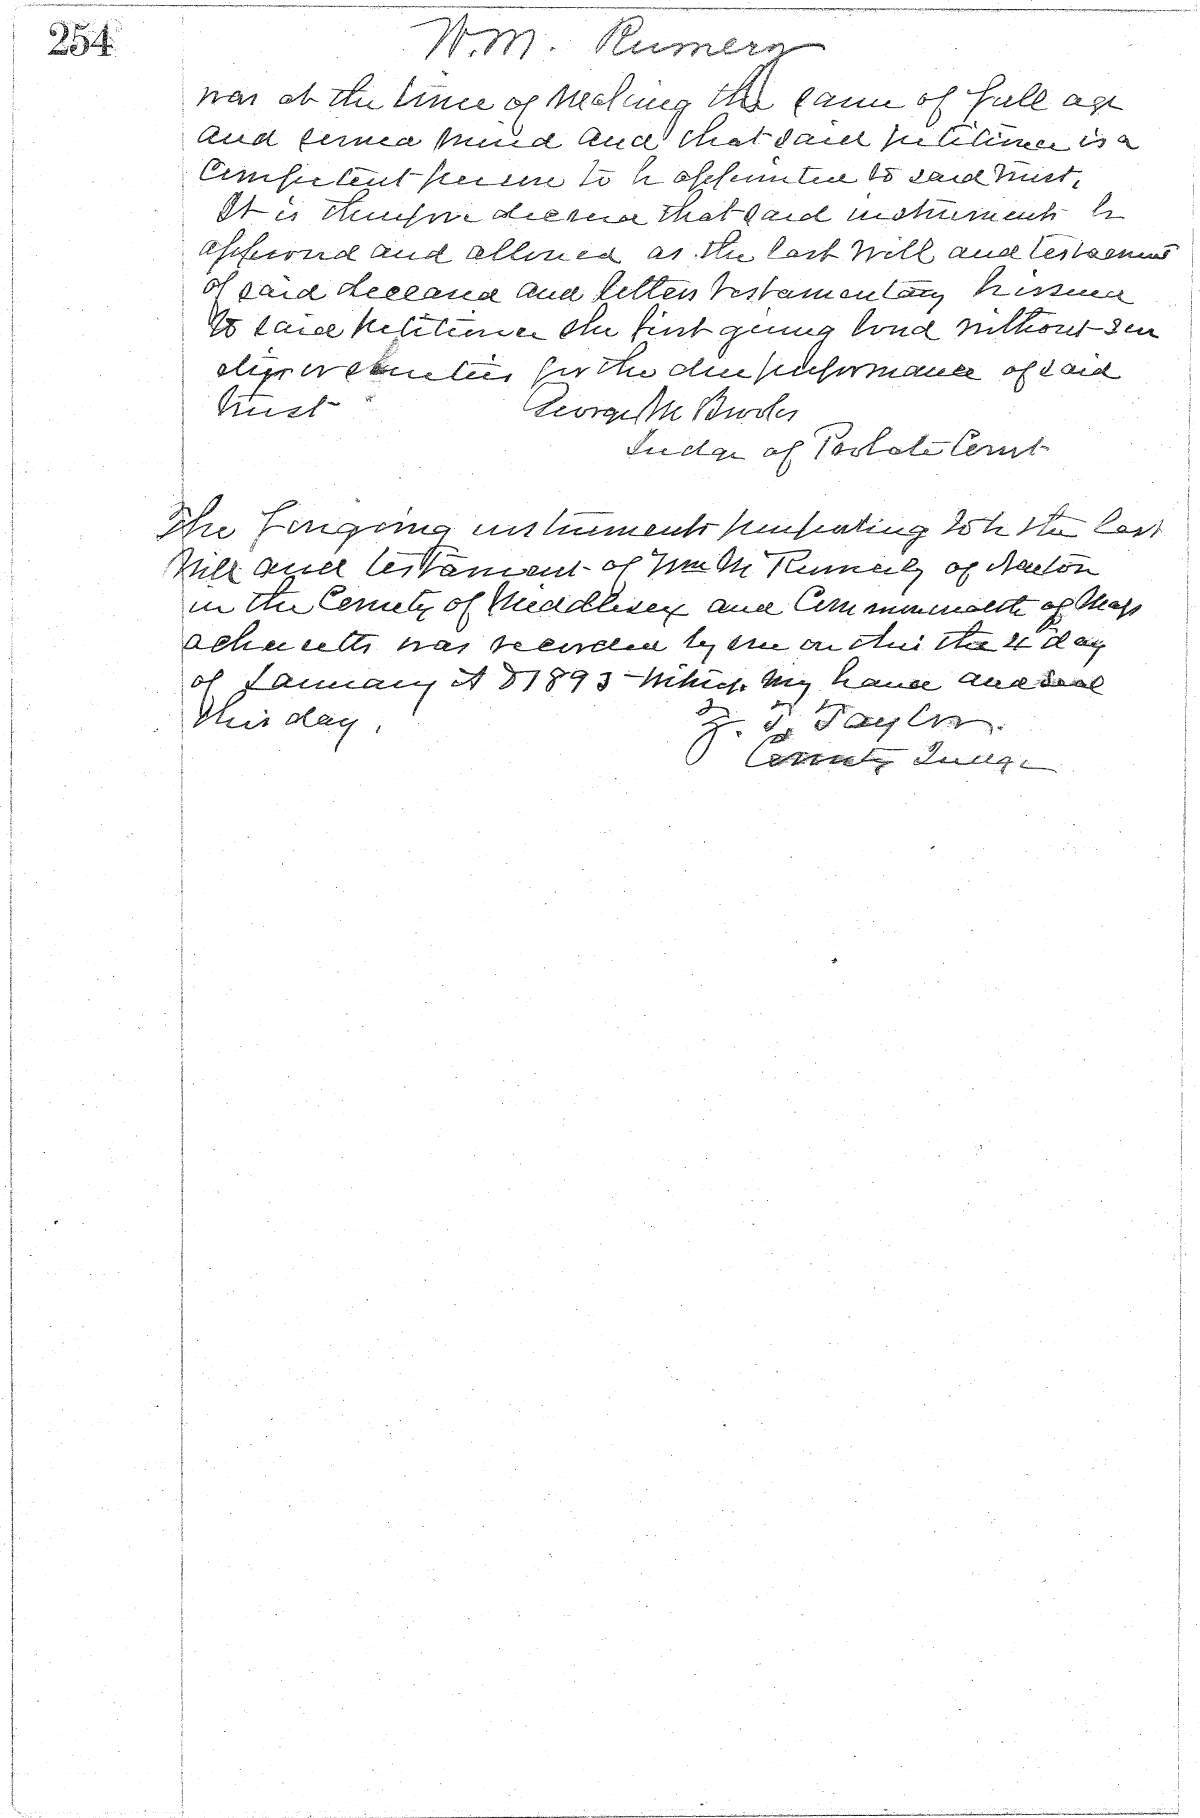 254
W. M. Rumery
was at the time of making the same of full age
and sound mind and that said petitioner is a
competent person to be appointed to said trust.
It is therefore decreed that said instrument be
approved and allowed as the last will and testament
of said deceased and letters testamentary be issued
to said petitioner she first giving bond without sur
or sureties for the due performance of said
trust
George M Brooks
Judge of Probate Court
The foregoing instruments purporting to be the last
Will and testament of Wm M Rumery of Newton
in the County of Middlesex and Commonwealth of Mass
achusetts was recorded by me on this the 4th day
of January A D 1893 my hand and seal
this day.
Z. T. Taylor.
County Judge